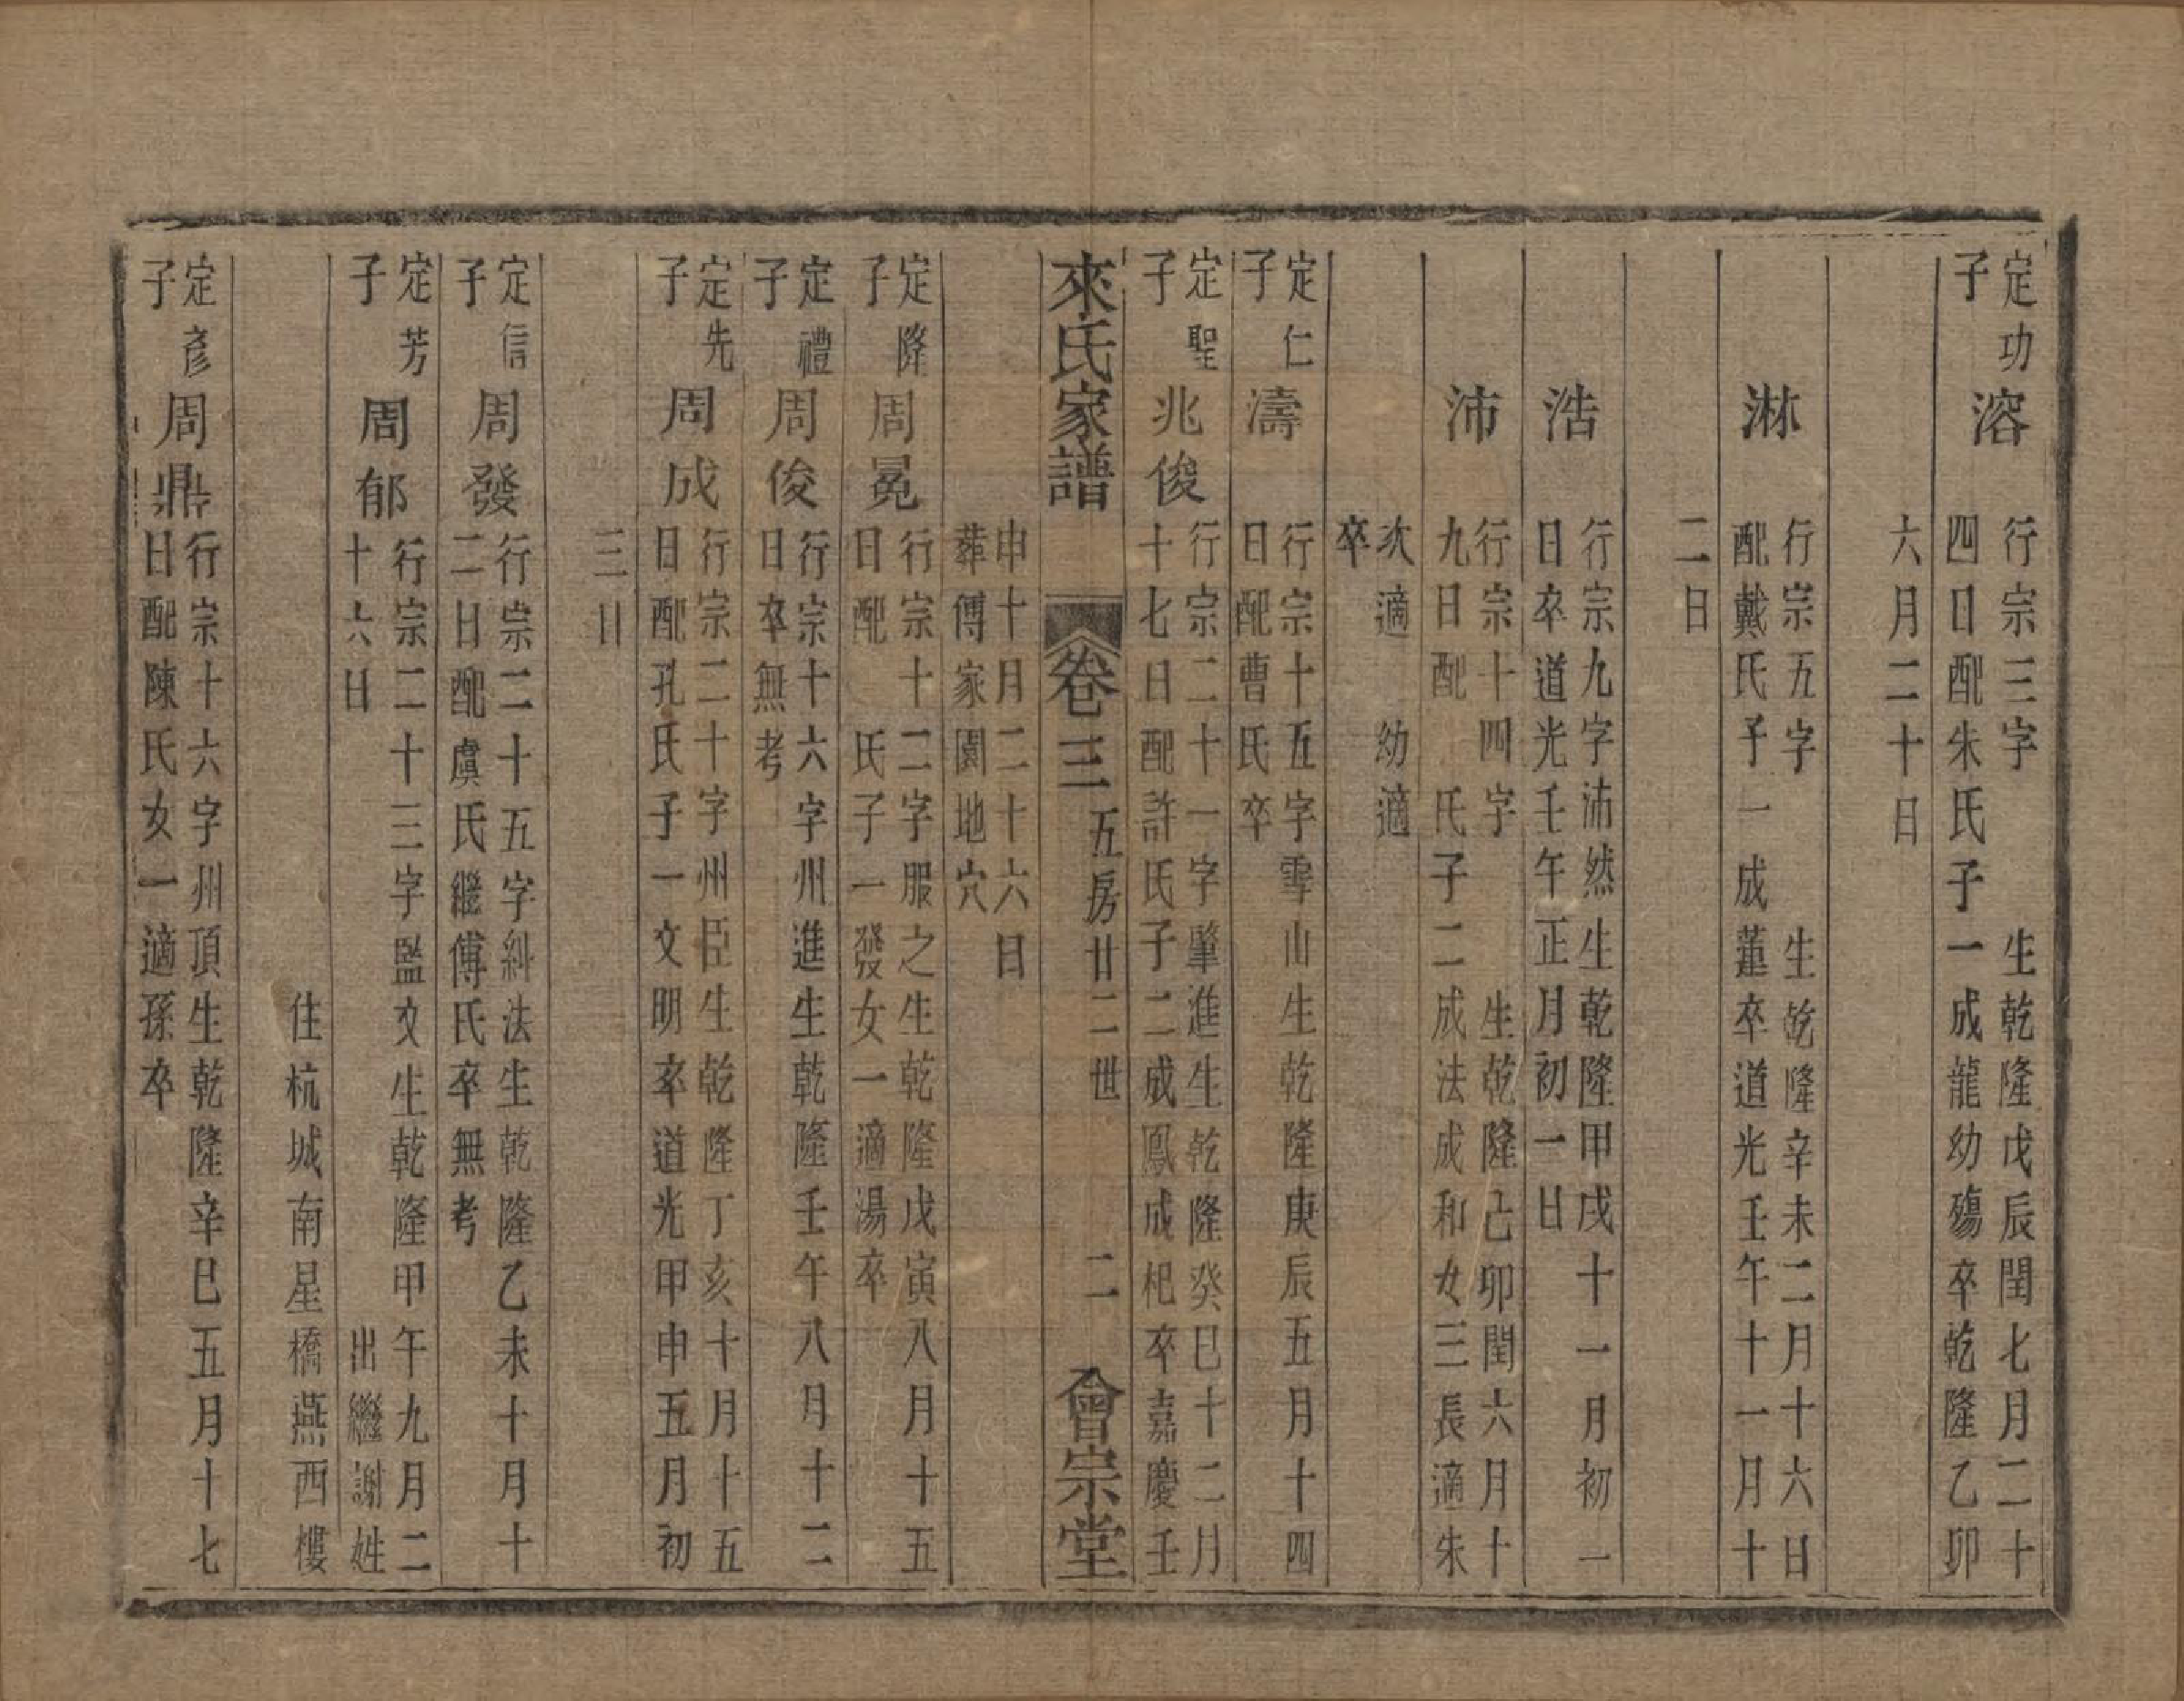 定功
子
溶
行宗三字　生乾隆戊辰閏七月二十
四日配朱氏子一成龍幼殤卒乾隆乙卯
六月二十日
淋
行宗五字　生乾隆辛未二月十六日
配戴氏子一成蓮卒道光壬午十一月十
二日
浩
行宗九字沛然生乾隆甲戌十一月初一
日卒道光壬午正月初一日
沛
行宗十四字　生乾隆己卯閏六月十
九日配　氏子二成法成和女三長適朱
次適　幼適
卒
定仁
子
濤
行宗十五字雪山生乾隆庚辰五月十四
日配曹氏卒
定聖
子
兆俊
行宗二十一字肇進生乾隆癸巳十二月
十七日配許氏子二成鳳成杞卒嘉慶壬
來氏家譜　卷三　五房廿二世　二　會宗堂
申十月二十六日
葬傅家園地穴
定隆
子
周冕
行宗十二字服之生乾隆戊寅八月十五
日配　氏子一發女一適湯卒
定禮
子
周俊
行宗十六字州進生乾隆壬午八月十二
日卒無考
定先
子
周成
行宗二十字州臣生乾隆丁亥十月十五
日配孔氏子一文明卒道光甲申五月初
三日
定信
子
周發
行宗二十五字糾法生乾隆乙未十月十
二日配虞氏繼傅氏卒無考
定芳
子
周郁
行宗二十三字監文生乾隆甲午九月二
十六日　出繼謝姓
住杭城南星橋燕西樓
定彥
子
周鼎
行宗十六字州頂生乾隆辛巳五月十七
日配陳氏女一適孫卒